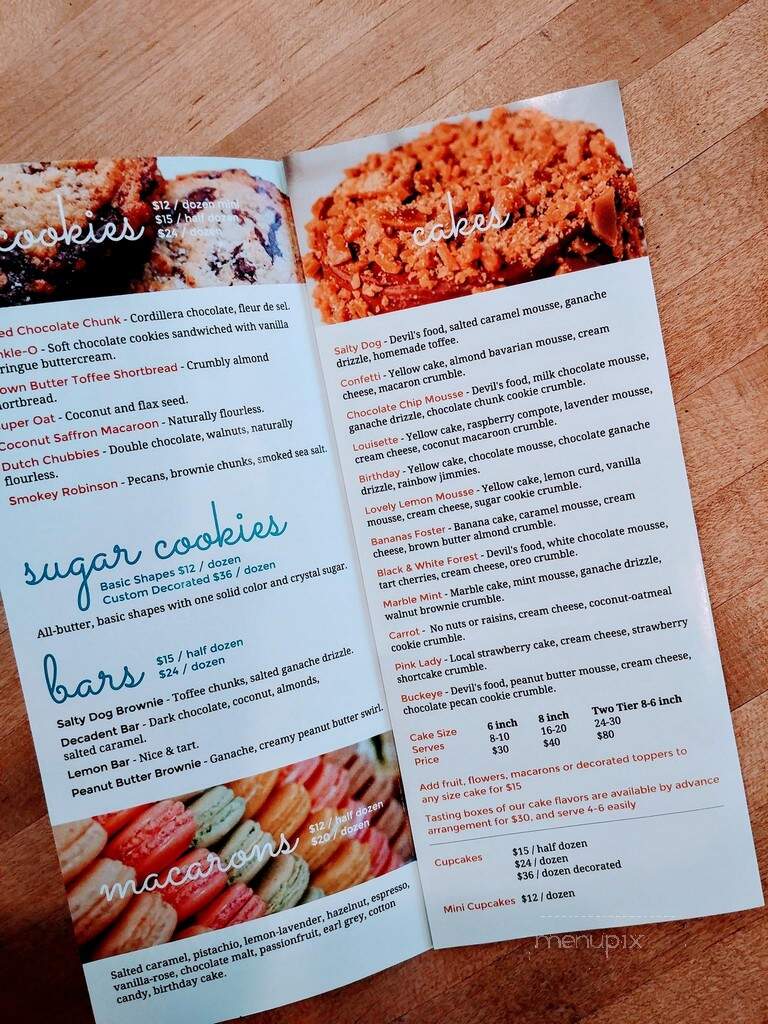 cookies
$12 / dozen mini
$15 / half dozen
$24 / dozen
ed Chocolate Chunk - Cordillera chocolate, fleur de sel.
nkle-O - Soft chocolate cookies sandwiched with vanilla
ringue buttercream.
own Butter Toffee Shortbread - Crumbly almond
hortbread.
uper Oat - Coconut and flax seed.
Coconut Saffron Macaroon - Naturally flourless.
Dutch Chubbies - Double chocolate, walnuts, naturally
flourless.
Smokey Robinson - Pecans, brownie chunks, smoked sea salt.
sugar cookies
Basic Shapes $12 / dozen
Custom Decorated $36 / dozen
All-butter, basic shapes with one solid color and crystal sugar.
bars
$15 / half dozen
$24 / dozen
Salty Dog Brownie - Toffee chunks, salted ganache drizzle.
Decadent Bar - Dark chocolate, coconut, almonds,
salted caramel.
Lemon Bar - Nice & tart.
Peanut Butter Brownie - Ganache, creamy peanut butter swirl.
macarons
$12 / half dozen
$20 / dozen
Salted caramel, pistachio, lemon-lavender, hazelnut, espresso,
vanilla-rose, chocolate malt, passionfruit, earl grey, cotton
candy, birthday cake.
cakes
Salty Dog - Devil's food, salted caramel mousse, ganache
drizzle, homemade toffee.
Confetti - Yellow cake, almond bavarian mousse, cream
cheese, macaron crumble.
Chocolate Chip Mousse - Devil's food, milk chocolate mousse,
ganache drizzle, chocolate chunk cookie crumble.
Louisette - Yellow cake, raspberry compote, lavender mousse,
cream cheese, coconut macaroon crumble.
Birthday - Yellow cake, chocolate mousse, chocolate ganache
drizzle, rainbow jimmies.
Lovely Lemon Mousse - Yellow cake, lemon curd, vanilla
mousse, cream cheese, sugar cookie crumble.
Bananas Foster - Banana cake, caramel mousse, cream
cheese, brown butter almond crumble.
Black & White Forest - Devil's food, white chocolate mousse,
tart cherries, cream cheese, oreo crumble.
Marble Mint - Marble cake, mint mousse, ganache drizzle,
walnut brownie crumble.
Carrot - No nuts or raisins, cream cheese, coconut-oatmeal
cookie crumble.
Pink Lady - Local strawberry cake, cream cheese, strawberry
shortcake crumble.
Buckeye - Devil's food, peanut butter mousse, cream cheese,
chocolate pecan cookie crumble.
Cake Size 6 inch 8 inch Two Tier 8-6 inch
Serves 8-10 16-20 24-30
Price $30 $40 $80
Add fruit, flowers, macarons or decorated toppers to
any size cake for $15
Tasting boxes of our cake flavors are available by advance
arrangement for $30, and serve 4-6 easily
Cupcakes $15 / half dozen
$24 / dozen
$36 / dozen decorated
Mini Cupcakes $12 / dozen
menupix